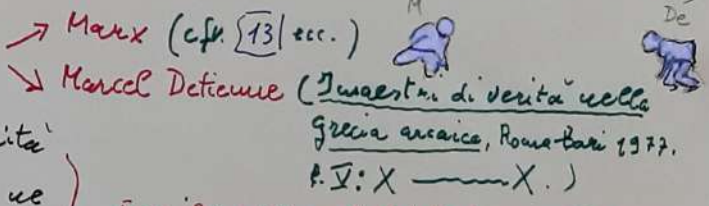 M
Dé
→ Marx (cfr. 13 | ecc.)
↘ Marcel Detienne (I maestri di verità nella
Grecia arcaica, Roma-Bari 1977.
p. V: X — X.)
ità
ue